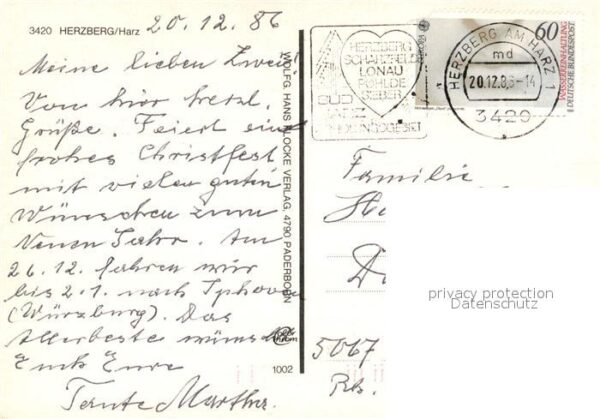 3420 HERZBERG/Harz
20.12.86
Meine lieben Zwei!
Von hier herzl.
Grüße. Feiert ein
frohes Christfest
mit vielen guten
Wünschen zum
Neuen Jahr. Am
26.12. fahren wir
bis 2.1. nach Iphoven
(Würzburg). Das
Allerbeste wünscht
Euch Eure
Tante Martha.
WOLFG. HANS KLOCKE VERLAG, 4790 PADERBORN
1002
HERZBERG
SCHARZFELD
LONAU
SIEBER
SÜD
HARZ
60
DEUTSCHE BUNDESPOST
HERZBERG AM HARZ 1
md
20.12.86-14
3420
Familie
5067
privacy protection
Datenschutz